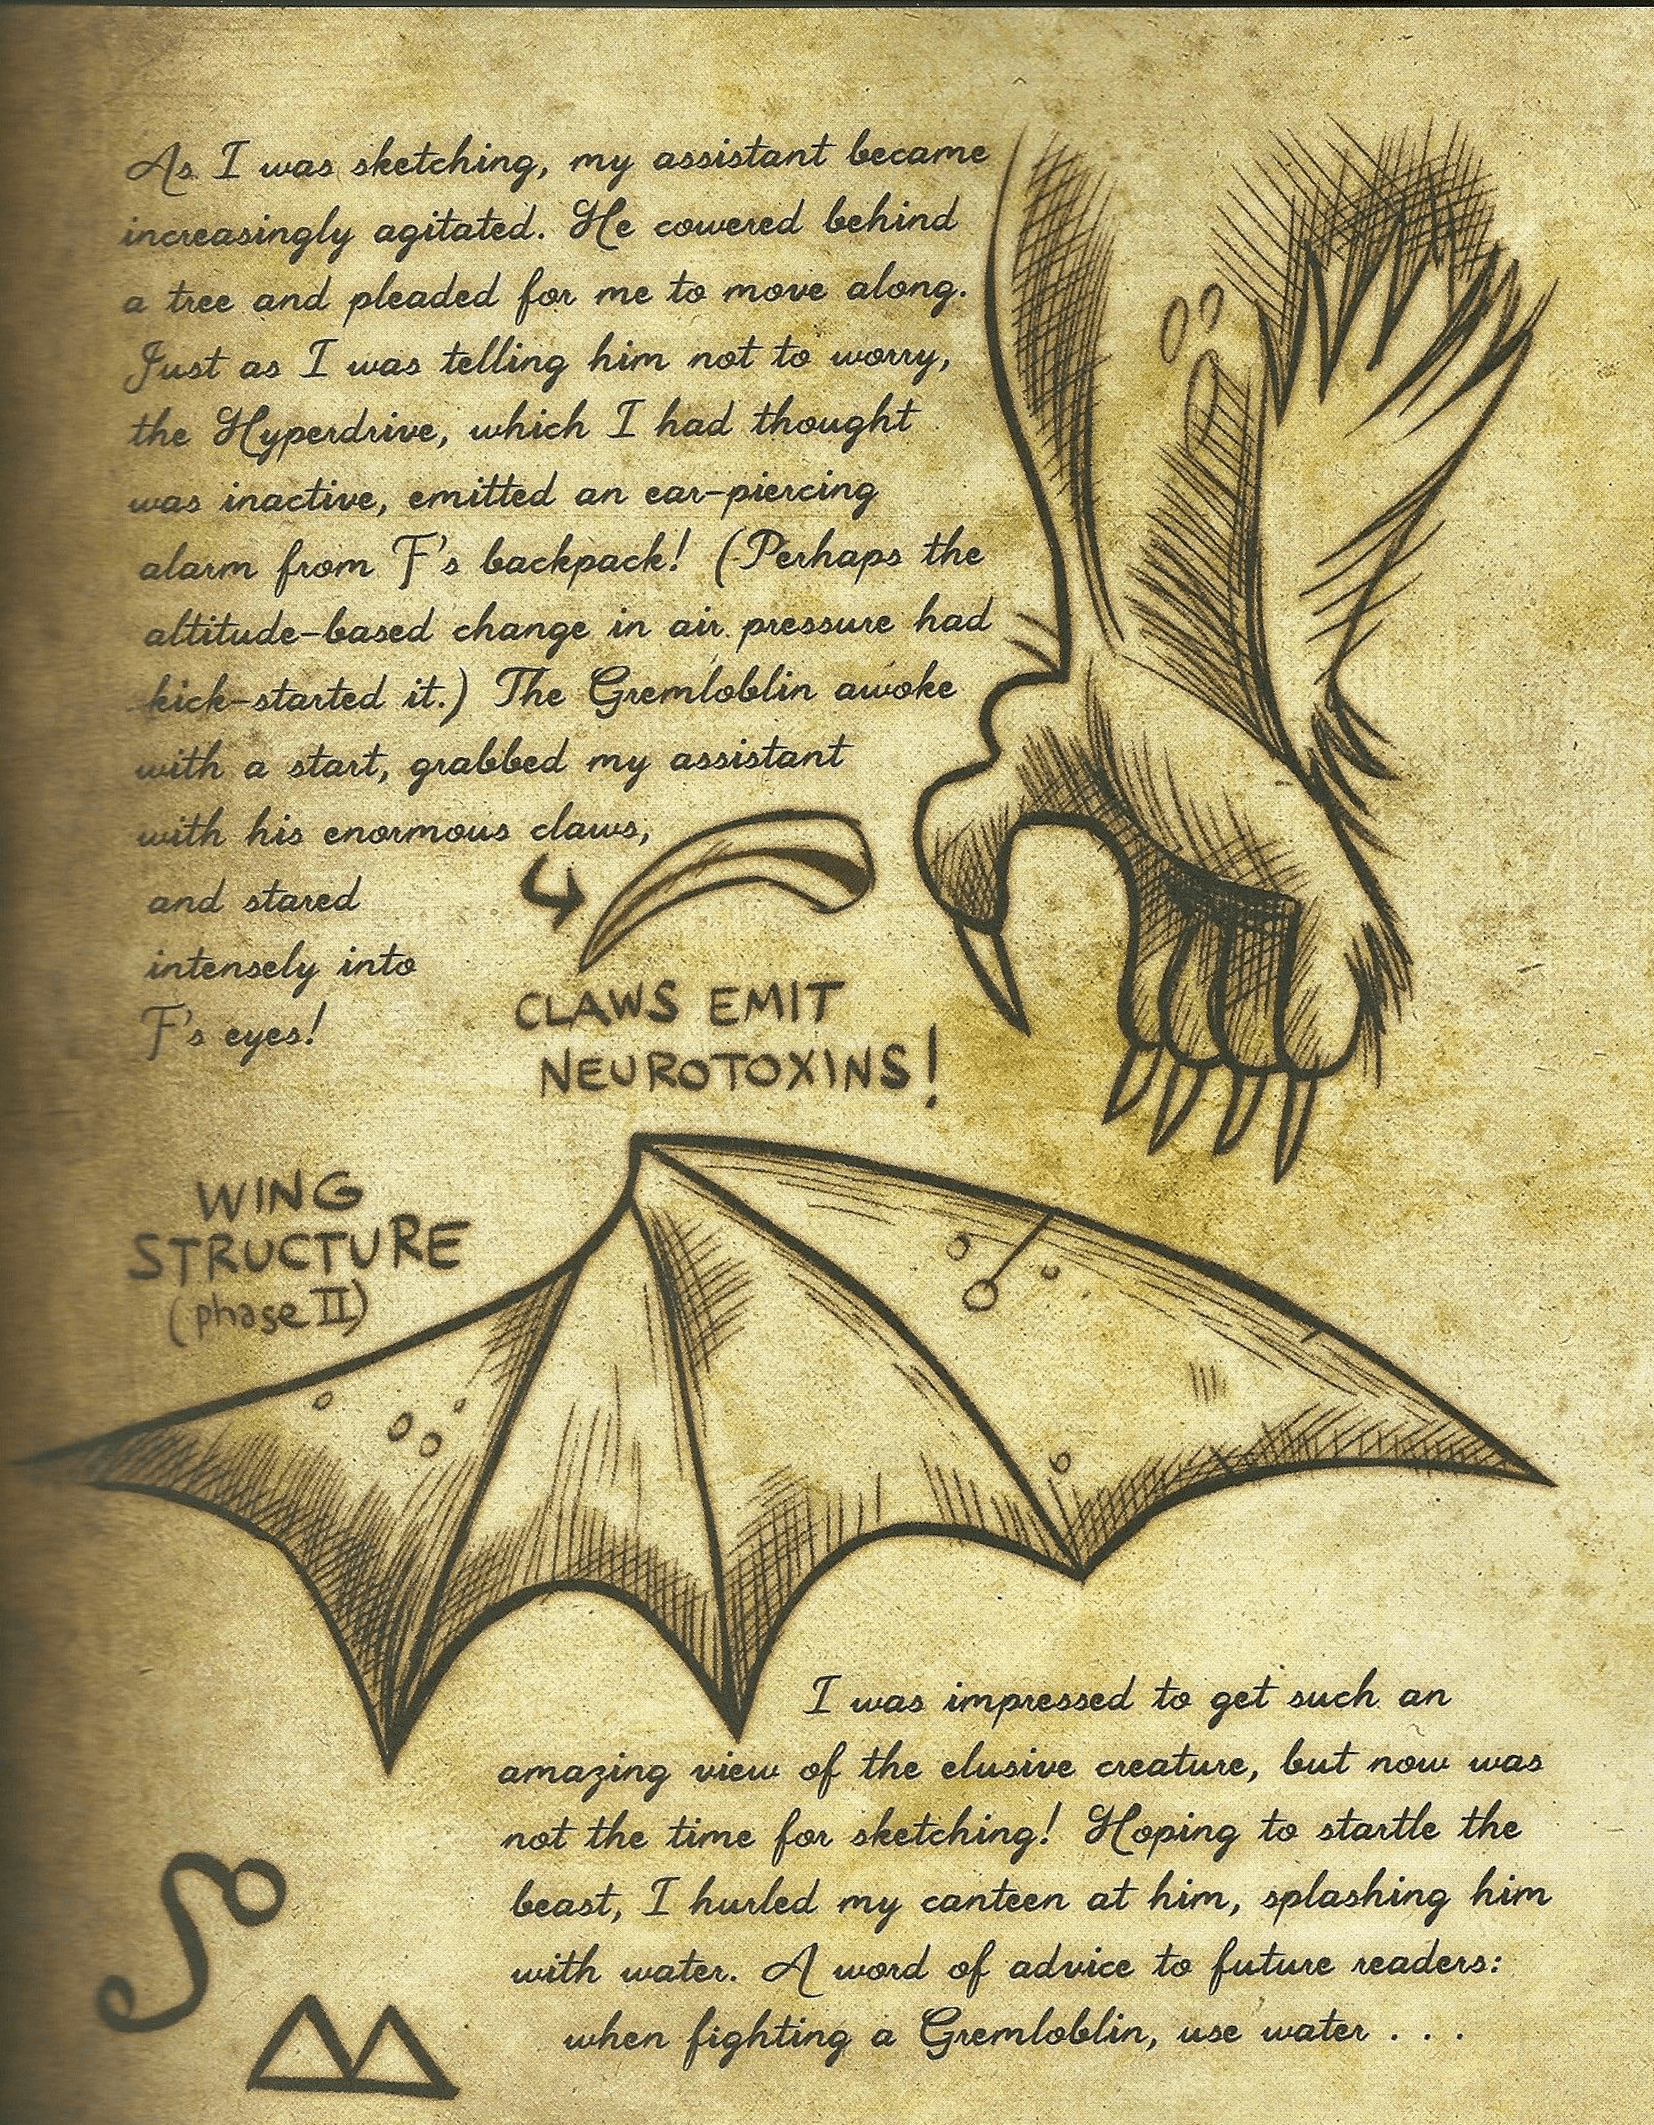 As I was sketching, my assistant became
increasingly agitated. He cowered behind
a tree and pleaded for me to move along.
Just as I was telling him not to worry,
the Hyperdrive, which I had thought
was inactive, emitted an ear-piercing
alarm from F's backpack! (Perhaps the
altitude-based change in air pressure had
kick-started it.) The Gremloblin awoke
with a start, grabbed my assistant
with his enormous claws,
and stared
intensely into
F's eyes!
CLAWS EMIT
NEUROTOXINS!
WING
STRUCTURE
(phase II)
I was impressed to get such an
amazing view of the elusive creature, but now was
not the time for sketching! Hoping to startle the
beast, I hurled my canteen at him, splashing him
with water. A word of advice to future readers:
when fighting a Gremloblin, use water . . .